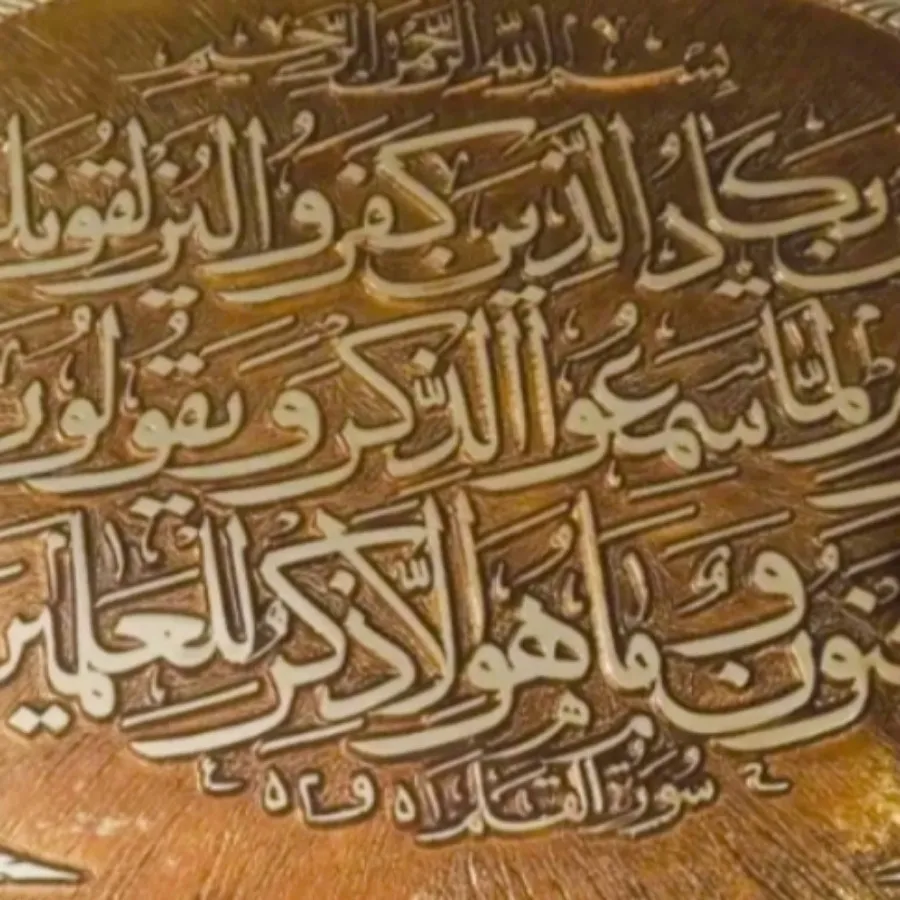 بسم الله الرحمن الرحيم
يكاد الذين كفروا ليزلقونك
لما سمعوا الذكر ويقولون
وما هو إلا ذكر للعلمين
سورة القلم ٥١ و ٥٢